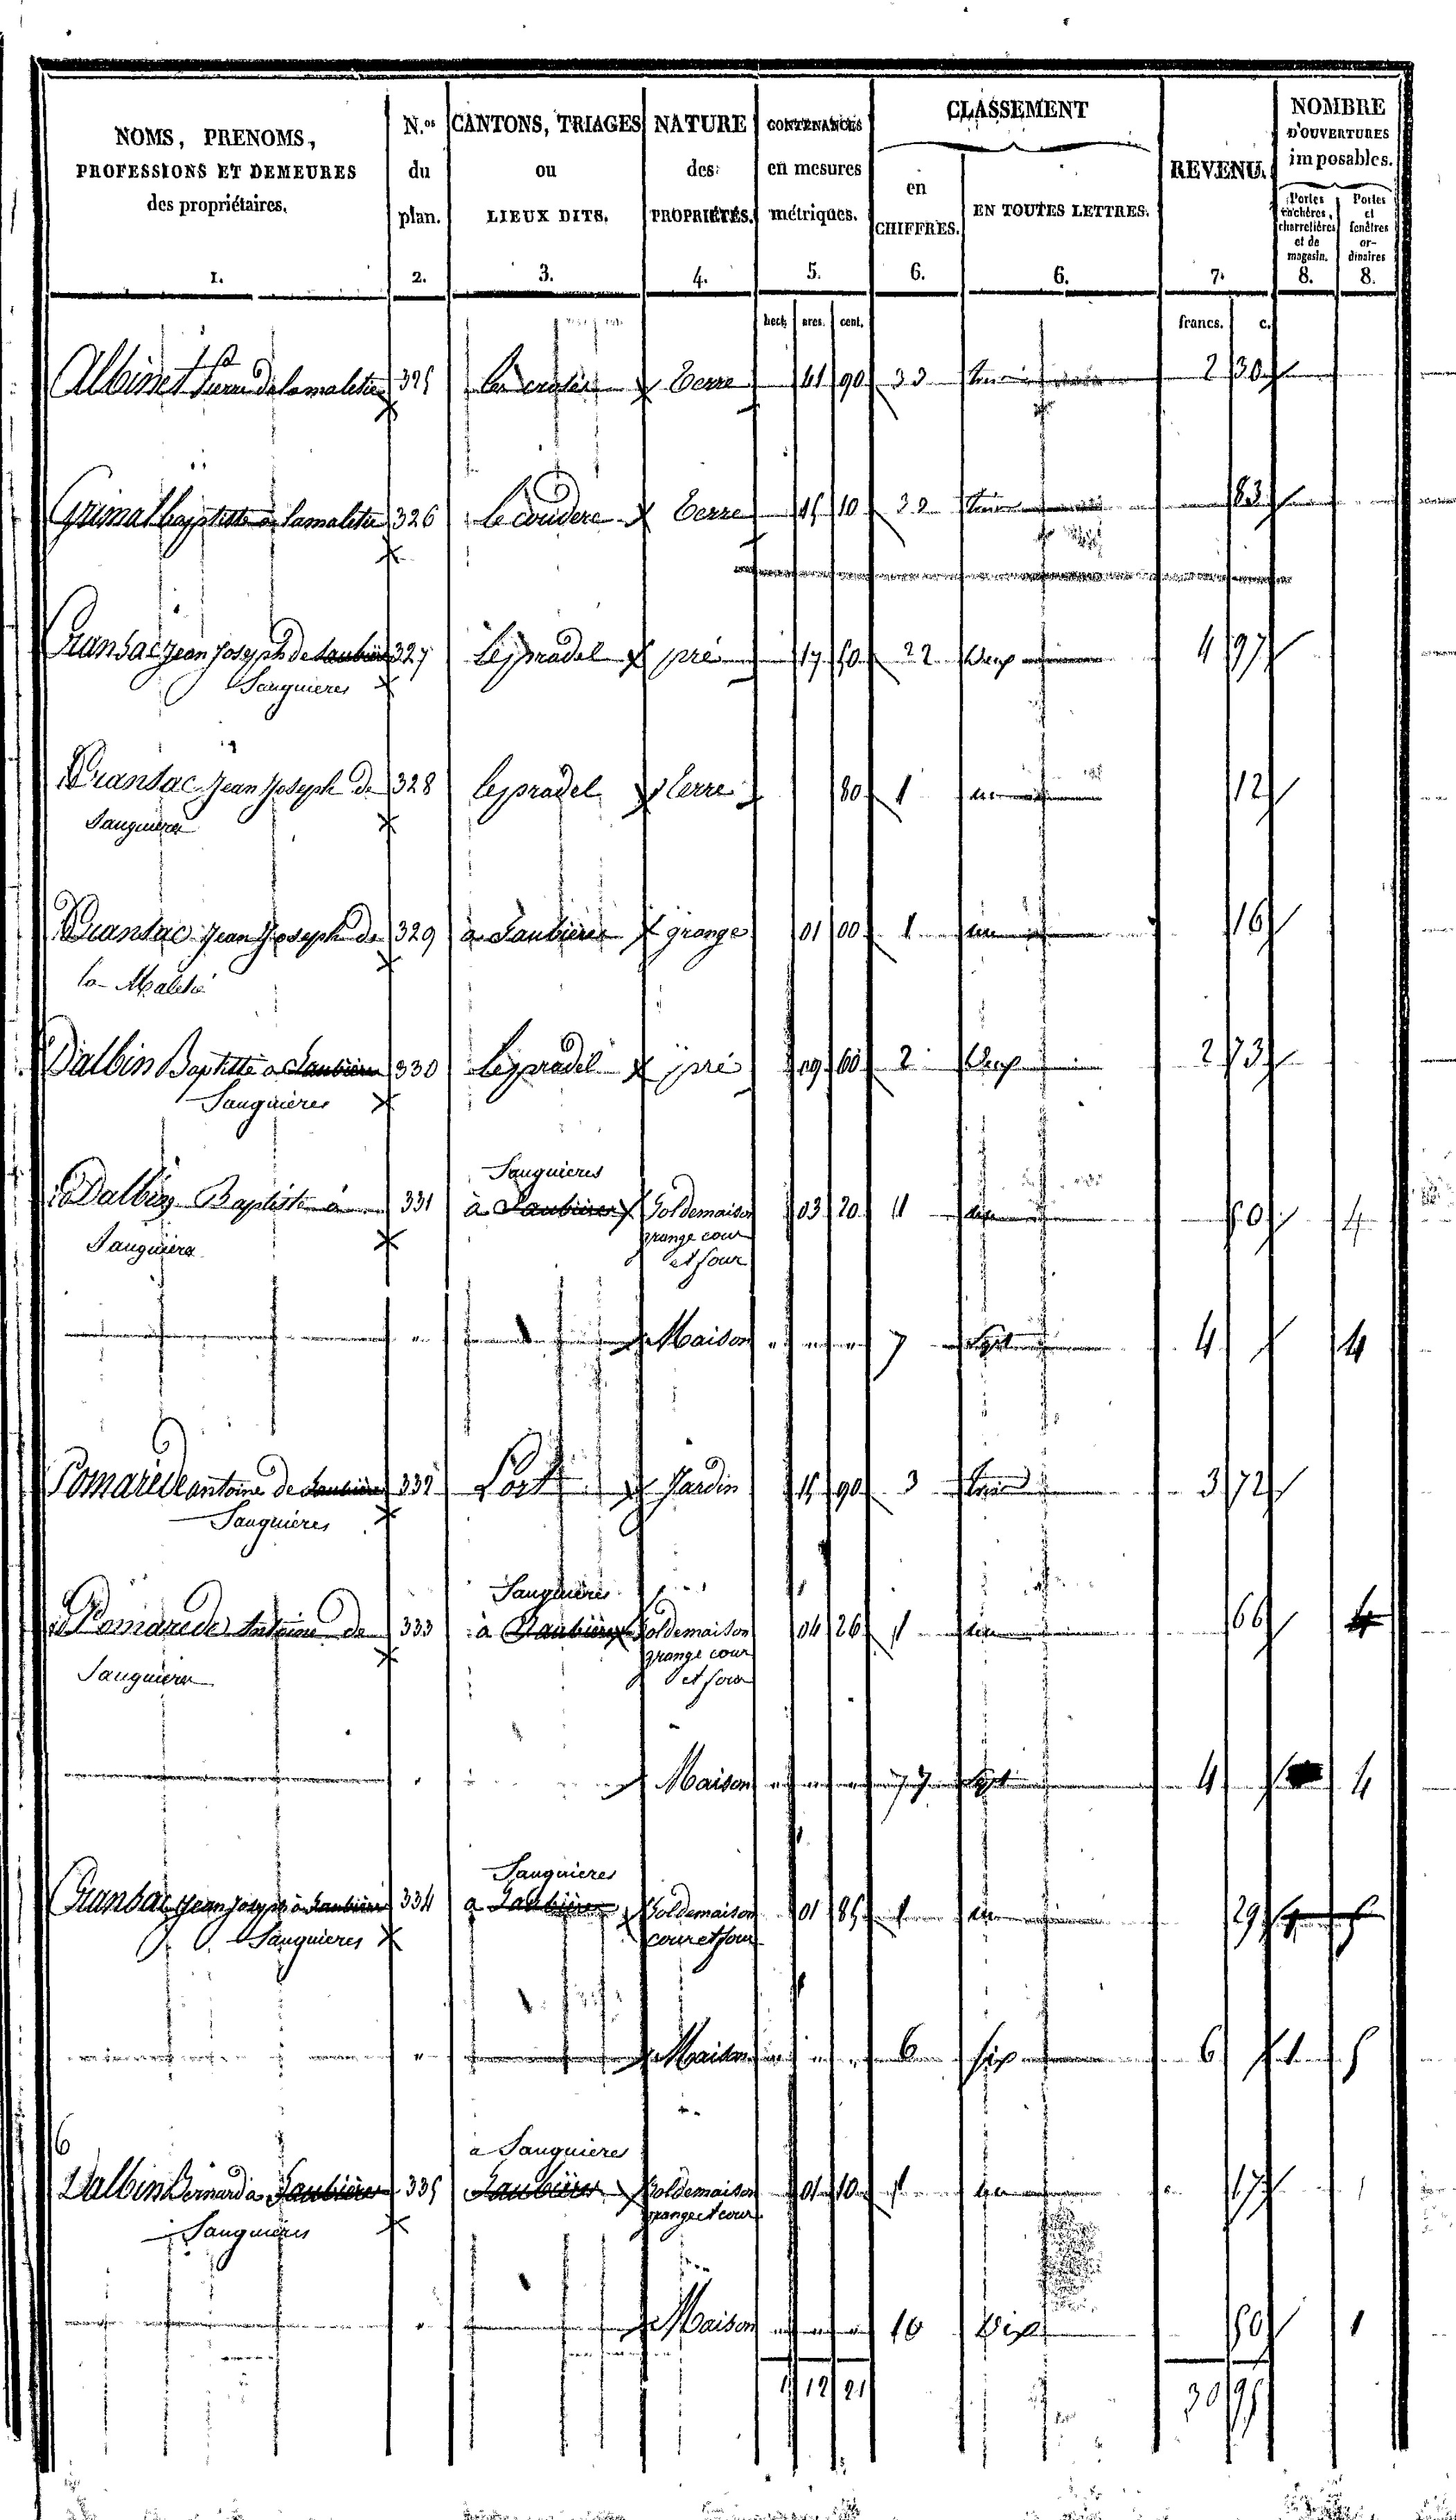 NOMS, PRENOMS,
PROFESSIONS ET DEMEURES
des propriétaires.
1.
N.os
du
plan.
2.
CANTONS, TRIAGES
ou
LIEUX DITS.
3.
NATURE
des
PROPRIÉTÉS.
4.
CONTENANCES
en mesures
métriques.
5.
CLASSEMENT
en
CHIFFRES.
6.
EN TOUTES LETTRES.
6.
REVENU.
7.
NOMBRE
D'OUVERTURES
imposables.
Portes
cochères,
charretières
et de
magasin.
8.
Portes
et
fenêtres
or-
dinaires
8.
hect. ares. cent. francs. c.
Albinet Pierre de lamaletie 325 Terre 41 90 33 2 30
Grimal baptiste à lamaletie 326 Le couderc Terre 15 10 32 83
Cransac jean joseph de 327 Le pradel pré 17 50 22 Deux 4 97
Sauguieres
Cransac Jean Joseph de 328 le pradel terre 80 1 une 12
Sauguieres
Cransac Jean Joseph de 329 à Saubieres grange 01 00 1 une 16
la Maletie
Dalbin Baptiste a Saubieres 330 Le pradel pré 09 60 2 Deux 2 73
Sauguieres
Sauguieres
Dalbin Baptiste à 331 à Saubieres Sol de maison 03 20 1 une 50 4
Sauguieres grange cour
et four
" Maison " " " 7 Sept 4 4
Pomarède antoine de Saubieres 332 Lort Jardin 15 90 3 trois 3 72
Sauguieres
Sauguieres
Pomarede Antoine de 333 à Saubieres Sol de maison 04 26 1 une 66 4
Sauguieres grange cour
et four
" Maison " " " 7 Sept 4 4
Sauguieres
Cransac jean joseph à Saubieres 334 a Saubieres Sol de maison 01 85 1 une 29 1 5
Sauguieres cour et four
" Maison " " " 6 six 6 1 5
a Sauguieres
Dalbin Bernard a Saubieres 335 Saubieres Sol de maison 01 10 1 une 17 1
Sauguieres grange et cour
" Maison " " " 10 Dix 50 1
1 12 21 30 95